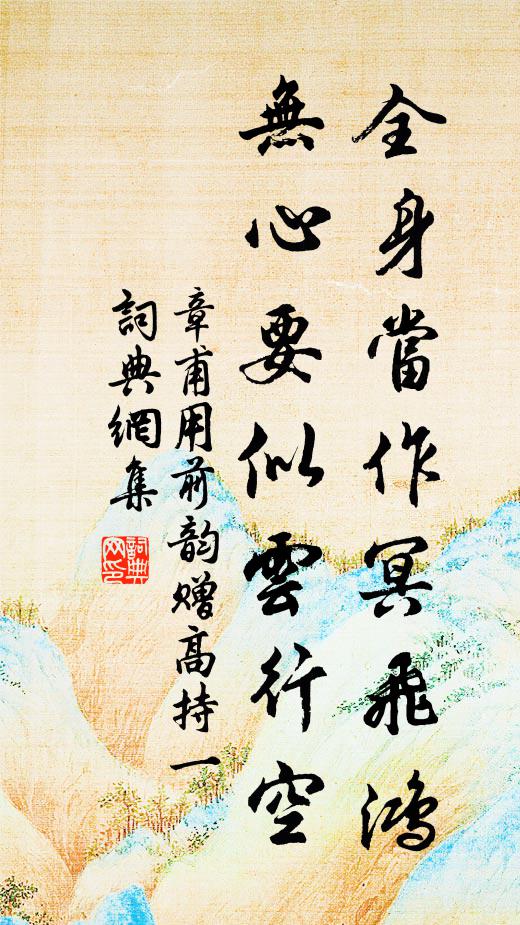 全身當作冥飛鴻
無心要似雲行空
章甫用前韵贈高持一
詞典網集
詞典
网印